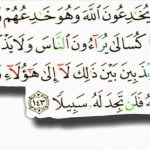 يُخَٰدِعُونَ ٱللَّهَ وَهُوَ خَٰدِعُهُمْ
كُسَالَىٰ يُرَآءُونَ ٱلنَّاسَ وَلَا
بَيْنَ ذَٰلِكَ لَآ إِلَىٰ هَٰٓؤُلَآءِ
فَلَن تَجِدَ لَهُۥ سَبِيلًا ١٤٣